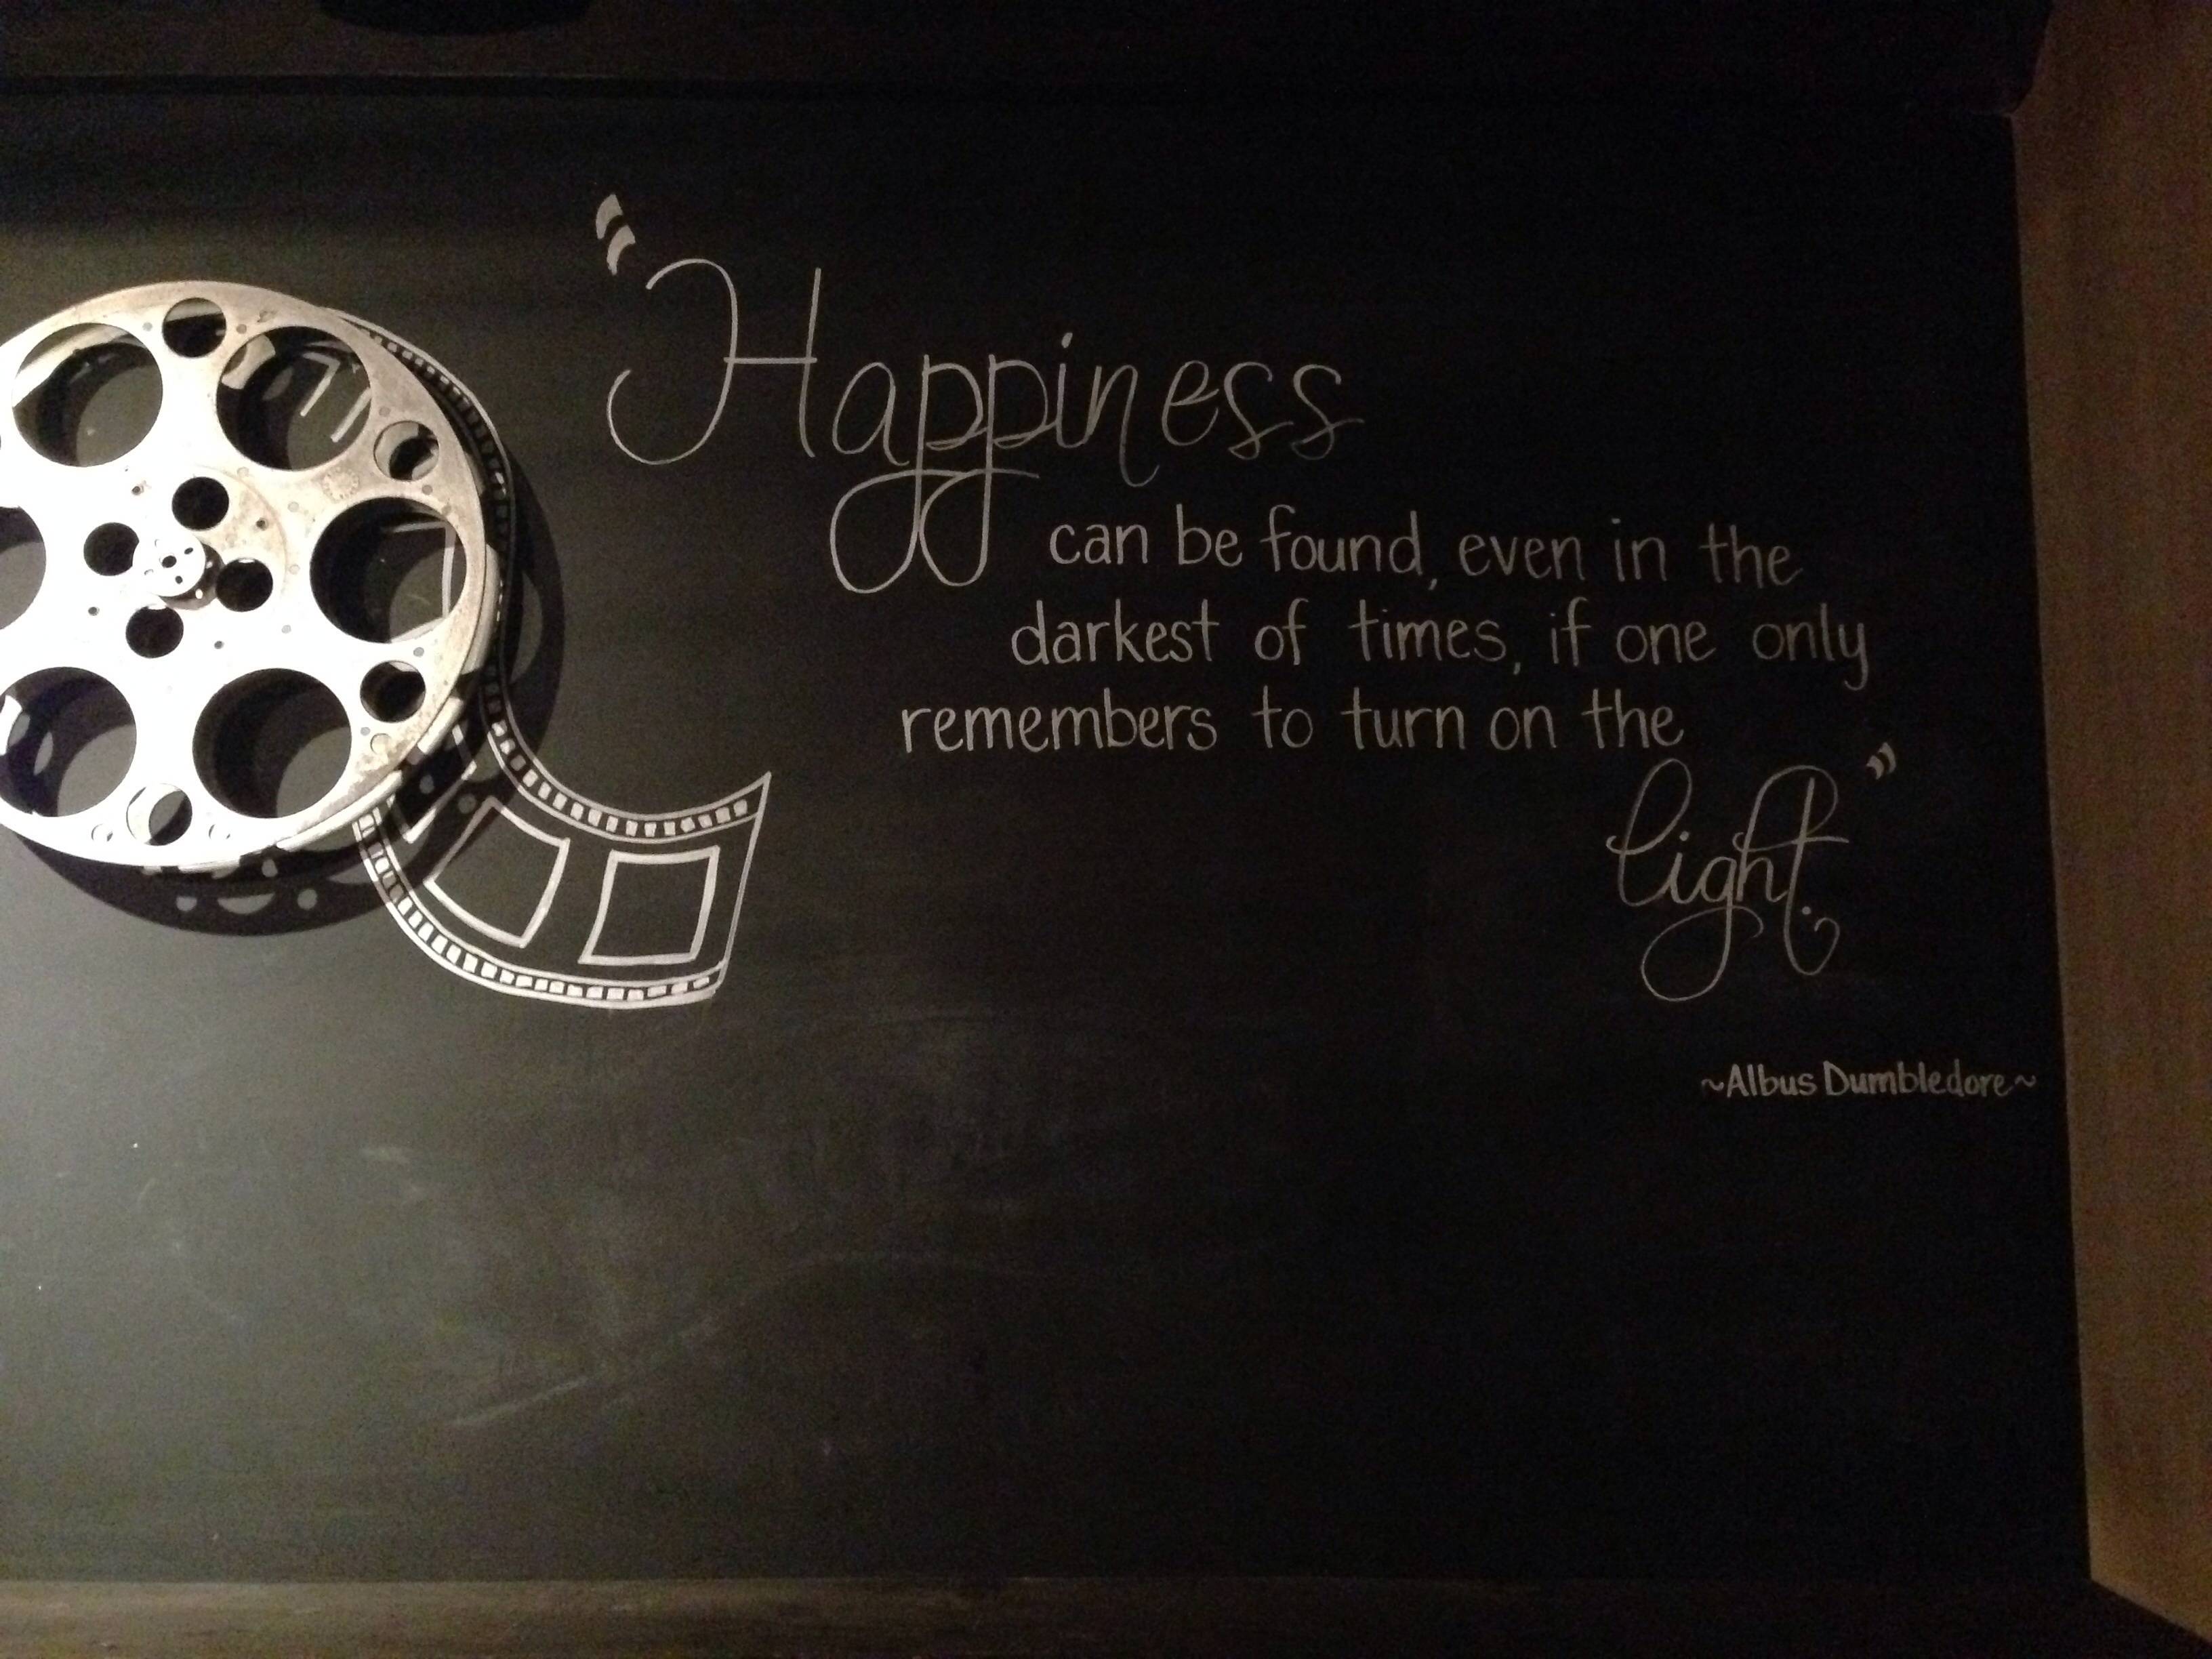 "Happiness
can be found, even in the
darkest of times, if one only
remembers to turn on the
light."
~Albus Dumbledore~